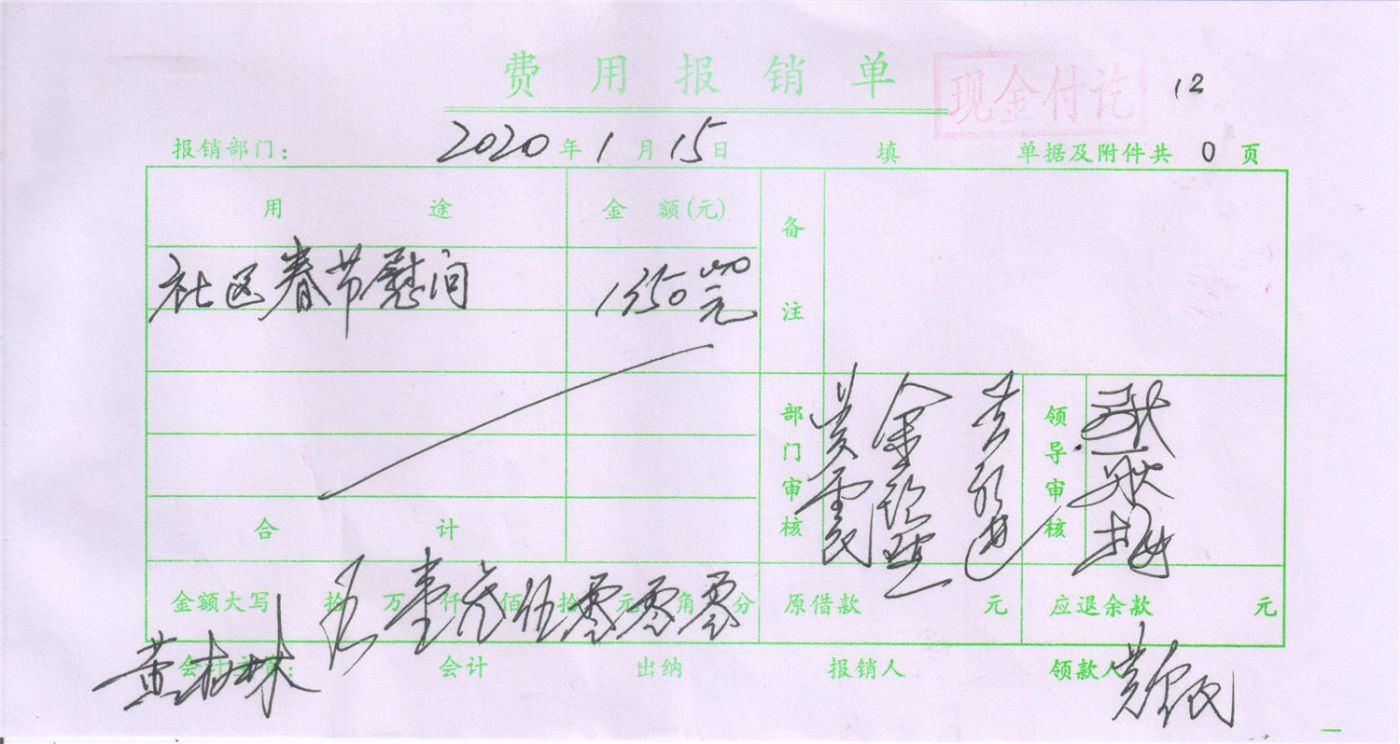 费用报销单
现金付讫
12
报销部门: 2020年1月15日 填 单据及附件共 0 页
用途 金额(元) 备注
社区春节慰问 1350.00元
部门审核 领导审核
合计
金额大写 拾 万壹仟叁佰伍拾零元零角零分 原借款 元 应退余款 元
会计主管: 会计 出纳 报销人 领款人